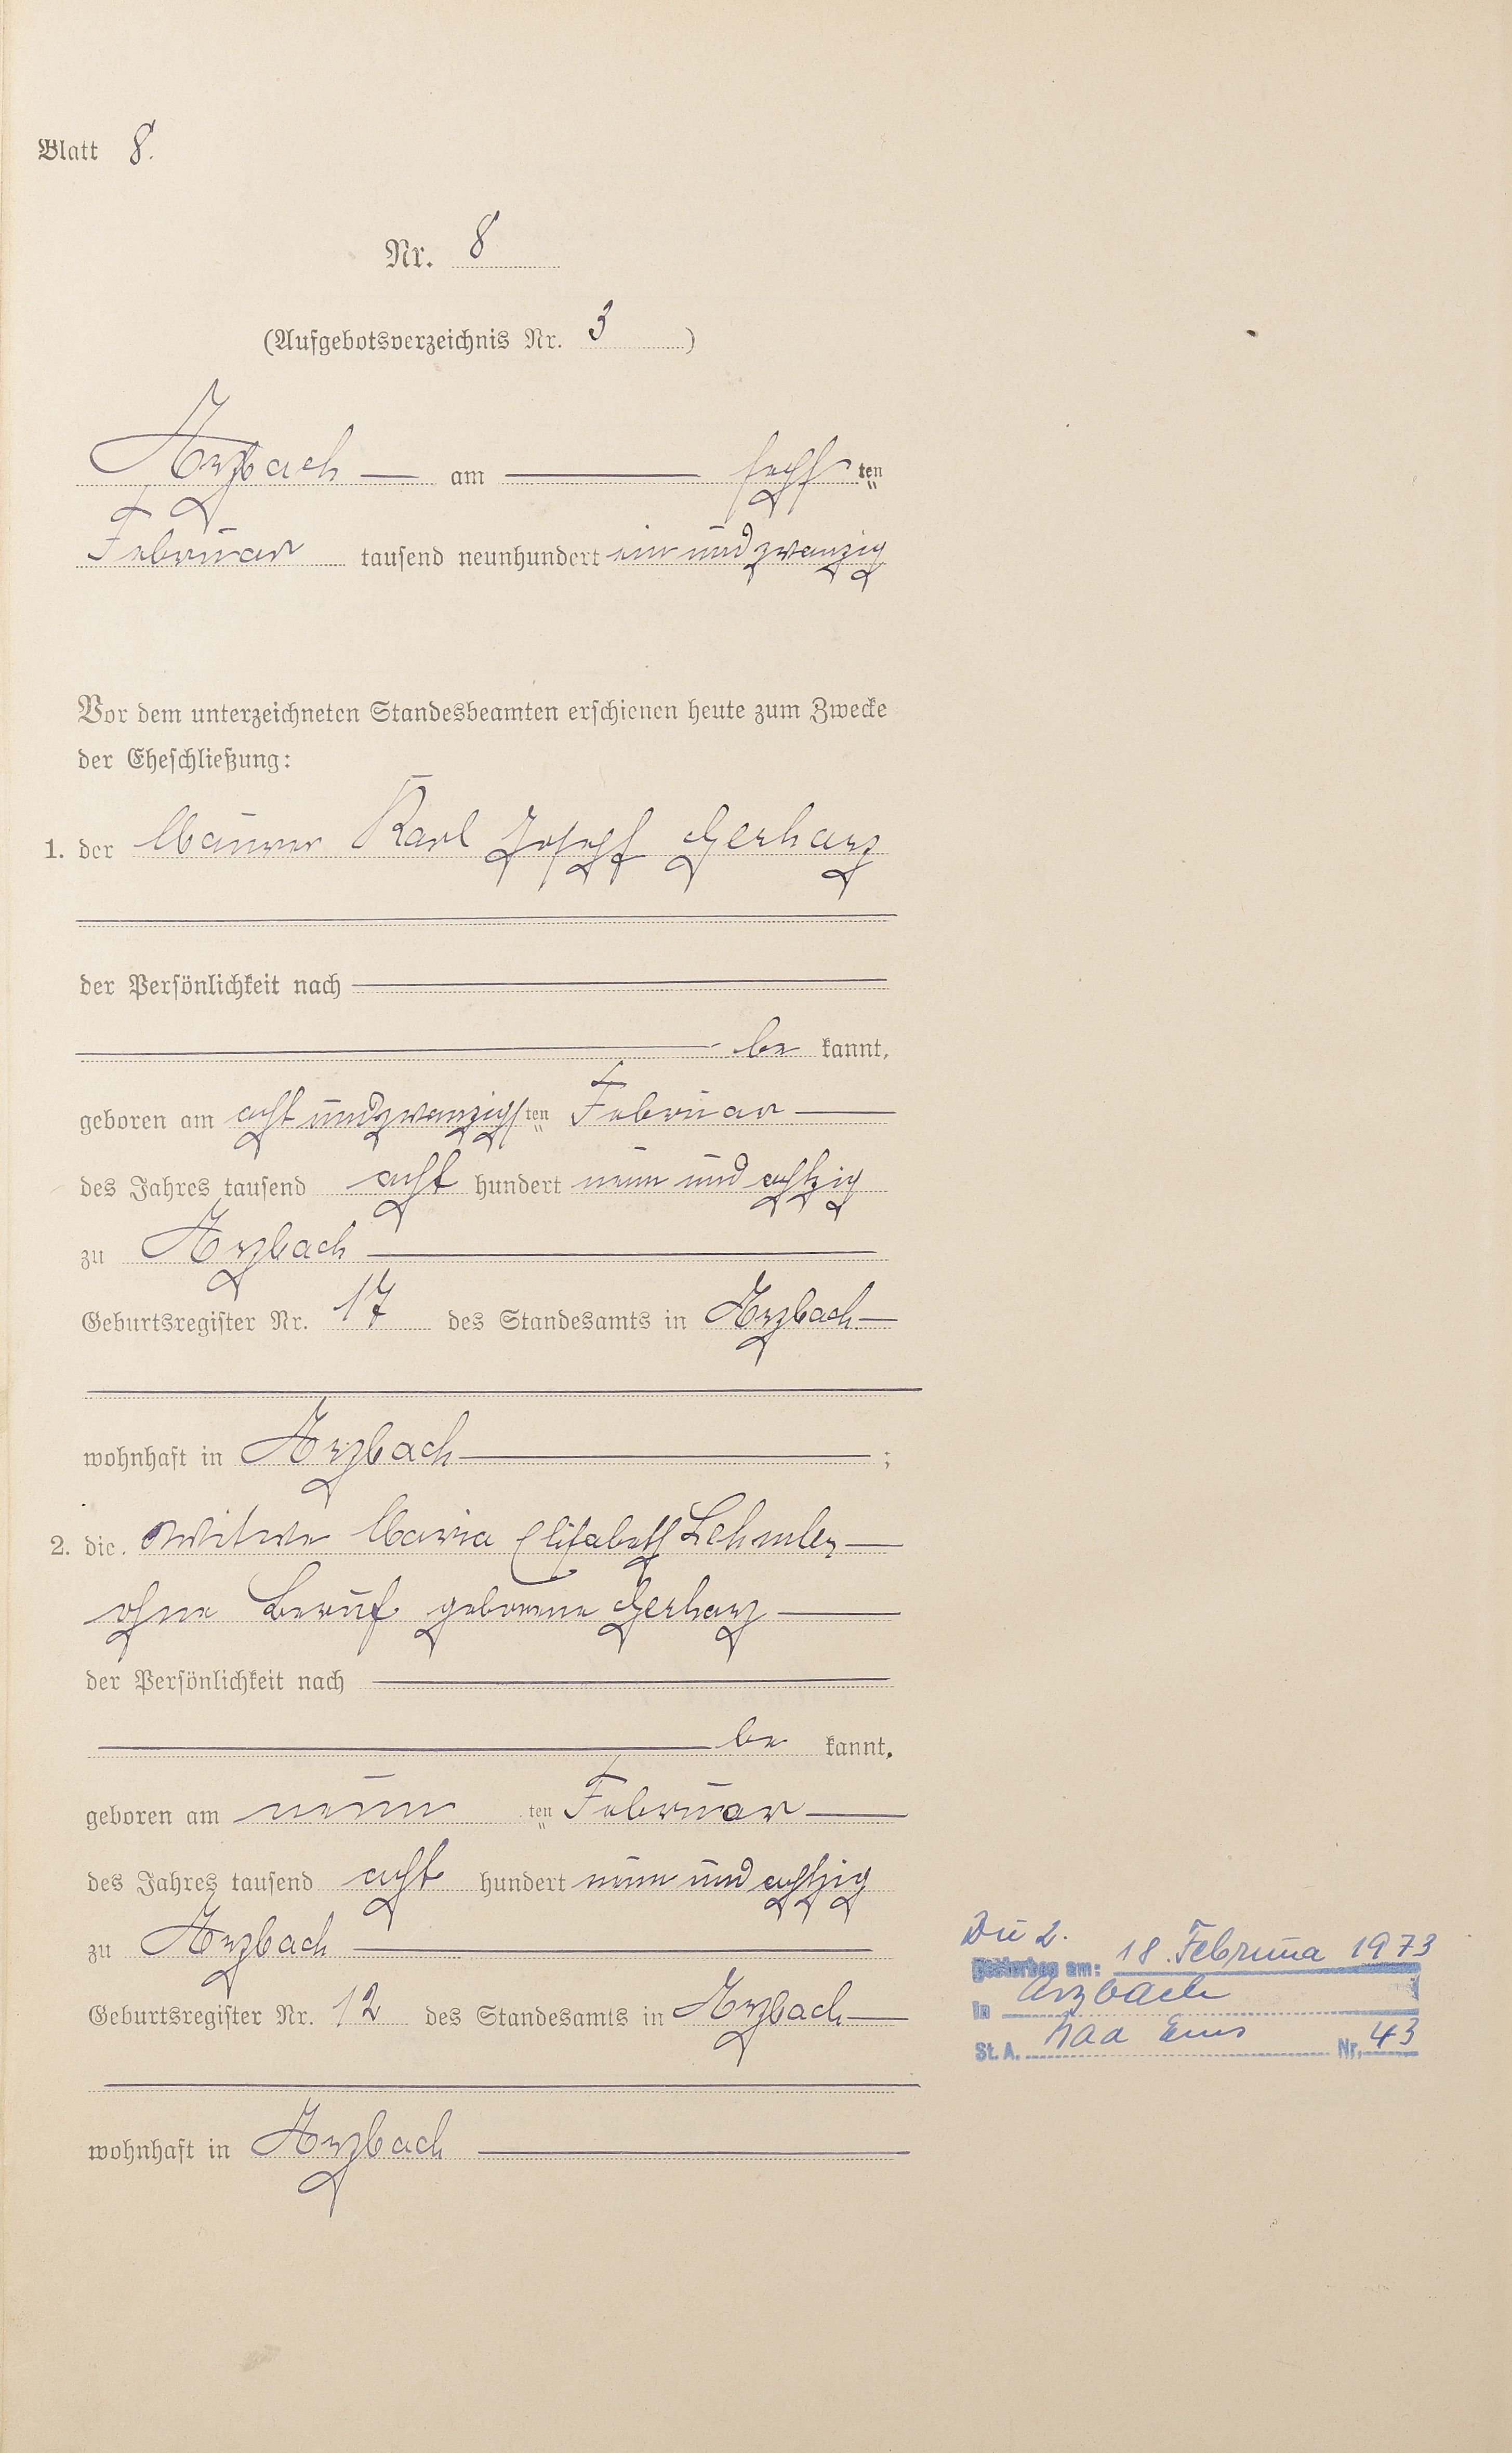 Blatt 8.
Nr. 8
(Aufgebotsverzeichnis Nr. 3 )
Arzbach am sechsten
Februar tausend neunhundert ein und zwanzig
Vor dem unterzeichneten Standesbeamten erschienen heute zum Zwecke
der Eheschließung:
1. der Maurer Karl Joseph Gerharz
der Persönlichkeit nach
be kannt,
geboren am acht und zwanzigsten Februar
des Jahres tausend acht hundert neun und achtzig
zu Arzbach
Geburtsregister Nr. 17 des Standesamts in Arzbach
wohnhaft in Arzbach ;
2. die Witwe Maria Elisabeth Lehmler
ohne Beruf geborene Gerharz
der Persönlichkeit nach
be kannt,
geboren am neun ten Februar
des Jahres tausend acht hundert neun und achtzig
zu Arzbach
Geburtsregister Nr. 12 des Standesamts in Arzbach
wohnhaft in Arzbach
Zu 2.
Gestorben am: 18. Februa 1973
in Arzbach
St. A. Bad Ems Nr. 43